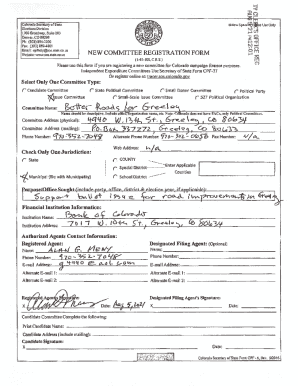 Colorado Secretary of State
Elections Division
1700 Broadway, Suite 200
Denver, CO 80290
NEW COMMITTEE REGISTRATION FORM
(1-45-108, C.R.S.)
Please use this form if you are registering a new committee for Colorado campaign finance purposes.
Independent Expenditure Committees Use Secretary of State Form CPF-37
Select Only One Committee Type:
Candidate Committee State Political Committee Small Donor Committee Political Party
X Issue Committee Small-Scale Issue Committee 527 Political Organization
Committee Name: Better Roads for Greeley
Committee Address (physical): 4940 W. 13th St., Greeley, CO 80634
Committee Address (mailing): P.O. Box 337272, Greeley, CO 80633
Phone Number: 970-352-7048 Alternate Phone Number: Fax Number: n/a
Web Address: n/a
Check Only One Jurisdiction:
State COUNTY
Special District Enter Applicable
X Municipal (file with Municipality) School District Counties
Purpose/Office Sought (include party, office, district & election year, if applicable):
Support ballot issue for road improvements in Greeley
Financial Institution Information:
Institution Name: Bank of Colorado
Institution Address: 7017 W. 10th St., Greeley, CO 80634
Authorized Agents Contact Information:
Registered Agent: Designated Filing Agent (Optional)
Name: Name:
Phone Number: 970-352-7048 Phone Number:
E-mail Address: E-mail Address:
Alternate E-mail 1: Alternate E-mail 1:
Alternate E-mail 2: Alternate E-mail 2:
Registered Agent's Signature: Designated Filing Agent's Signature:
X Date: Aug 5, X Date:
Candidate Committee Complete the following:
Print Candidate Name:
Candidate Address (include mailing):
Candidate Signature:
X Date: